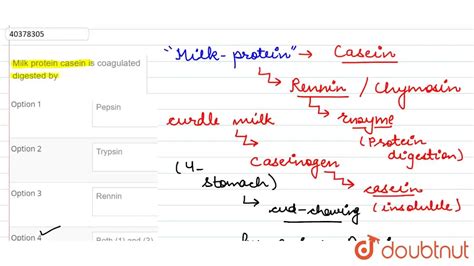 40378305
Milk protein casein is coagulated
digested by
Option 1
Pepsin
Option 2
Trypsin
Option 3
Rennin
Option 4
Both (1) and (3)
"Milk-protein" → Casein
Rennin / Chymosin
curdle milk
enzyme
(Protein
digestion)
Caseinogen
(4-
stomach)
casein
(insoluble)
cud-chewing
doubtnut